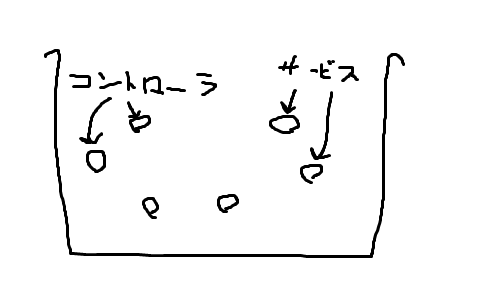 コントローラ
サービス